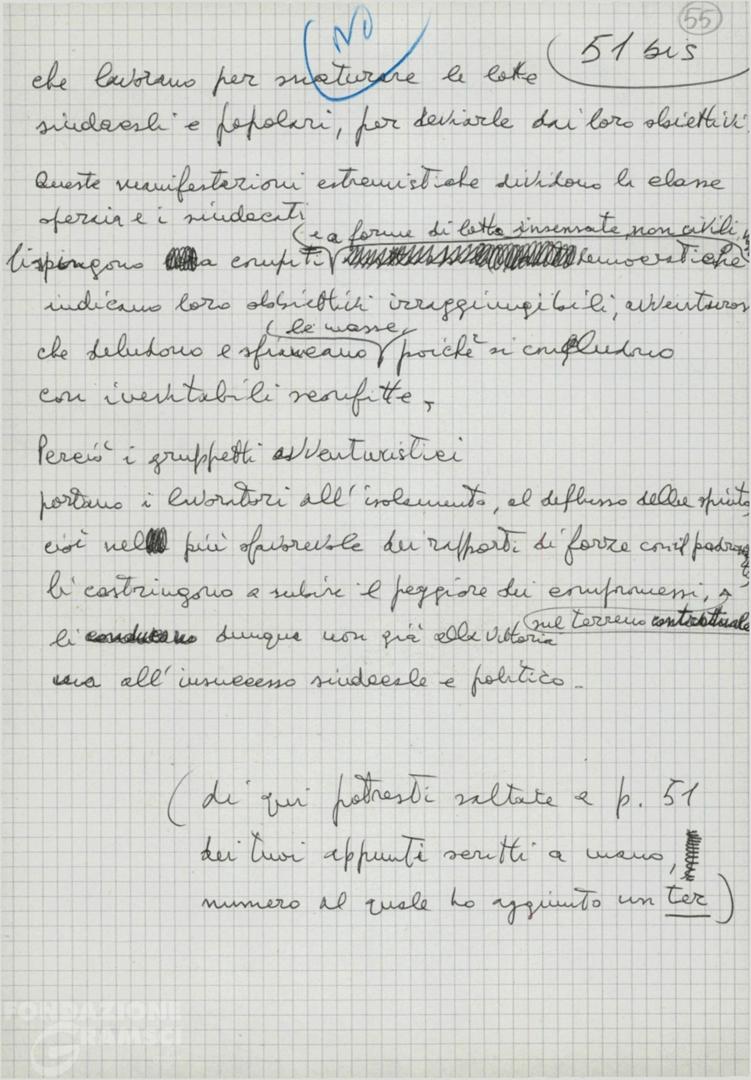 55
NO
51 bis
che lavorano per snaturare le lotte
sindacali e popolari, per deviarle dai loro obiettivi.
Queste manifestazioni estremistiche dividono la classe
operaia e i sindacati
e a forme di lotta insensate, non civili,
li spingono a compiti democratiche
indicano loro obbiettivi irraggiungibili, avventurosi
le masse,
che deludono e sfiancano poiché si concludono
con inevitabili sconfitte,
Perciò i gruppetti avventuristici
portano i lavoratori all'isolamento, al deflusso delle spinte,
cioè nel più sfavorevole dei rapporti di forze con il padronato,
li costringono a subire il peggiore dei compromessi,
sul terreno contrattuale
li conducono dunque non già alla vittoria
ma all'insuccesso sindacale e politico.
(di qui potresti saltate a p. 51
dei tuoi appunti scritti a mano,
numero al quale ho aggiunto un ter)
FONDAZIONE
GRAMSCI